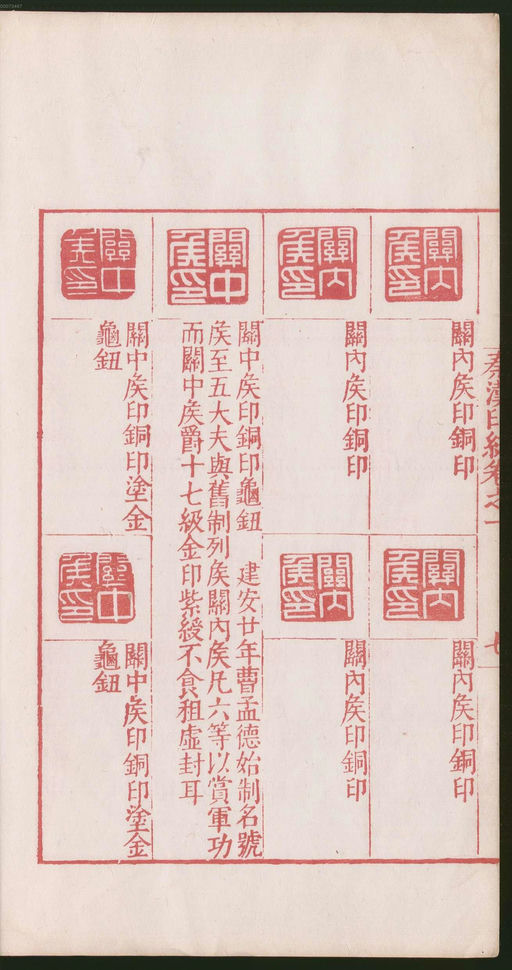 秦漢印統卷之一
七
關內侯印
關內矦印銅印
關內侯印
關內矦印銅印
關內侯印
關內矦印銅印
關內侯印
關內矦印銅印
關中侯印
關中矦印銅印龜鈕 建安廿年曹孟德始制名號
矦至五大夫與舊制列矦關內矦凡六等以賞軍功
而關中矦爵十七級金印紫綬不食租虛封耳
關中侯印
關中矦印銅印塗金
龜鈕
關中侯印
關中矦印銅印塗金
龜鈕
00073467